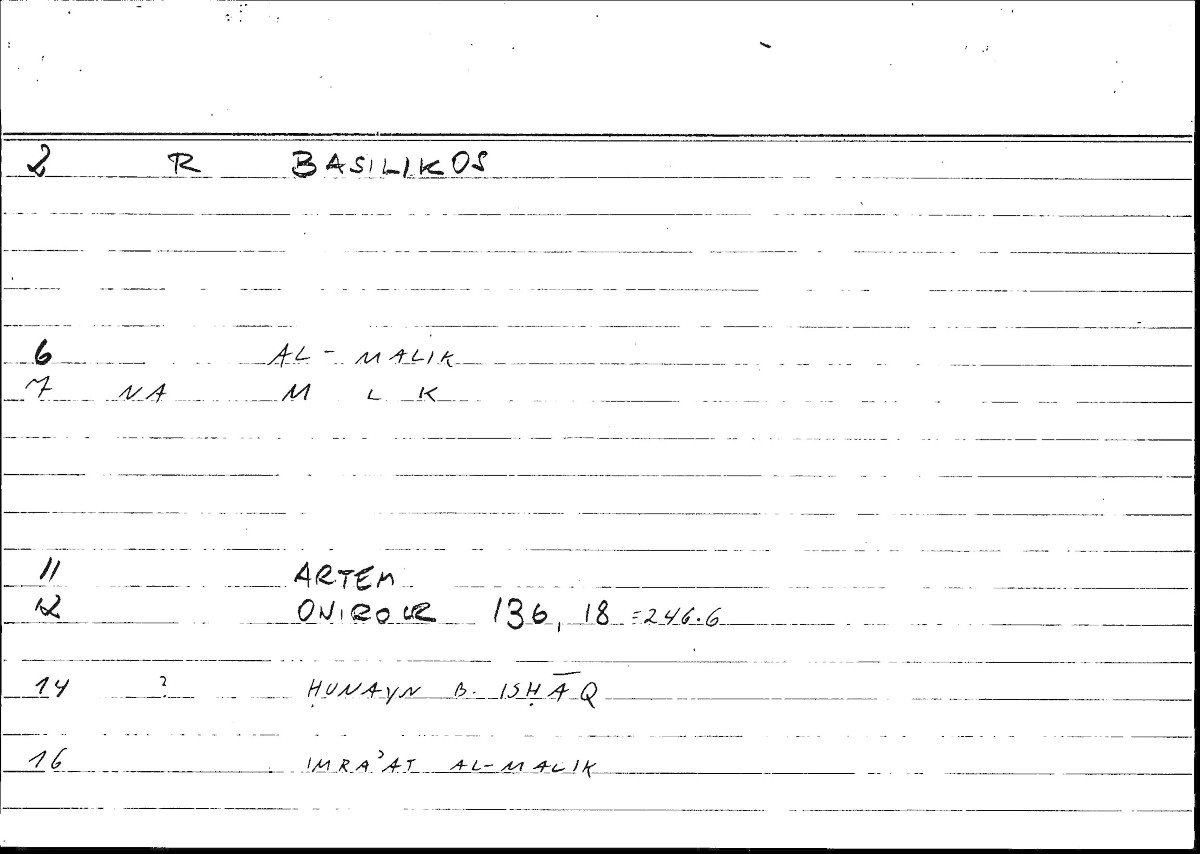 2 R BASILIKOS
6 AL-MALIK
7 NA M L K
11 ARTEM
12 ONIROCR 136, 18 =246.6
14 ? ḤUNAYN B. ISḤĀQ
16 IMRAʾAT AL-MALIK